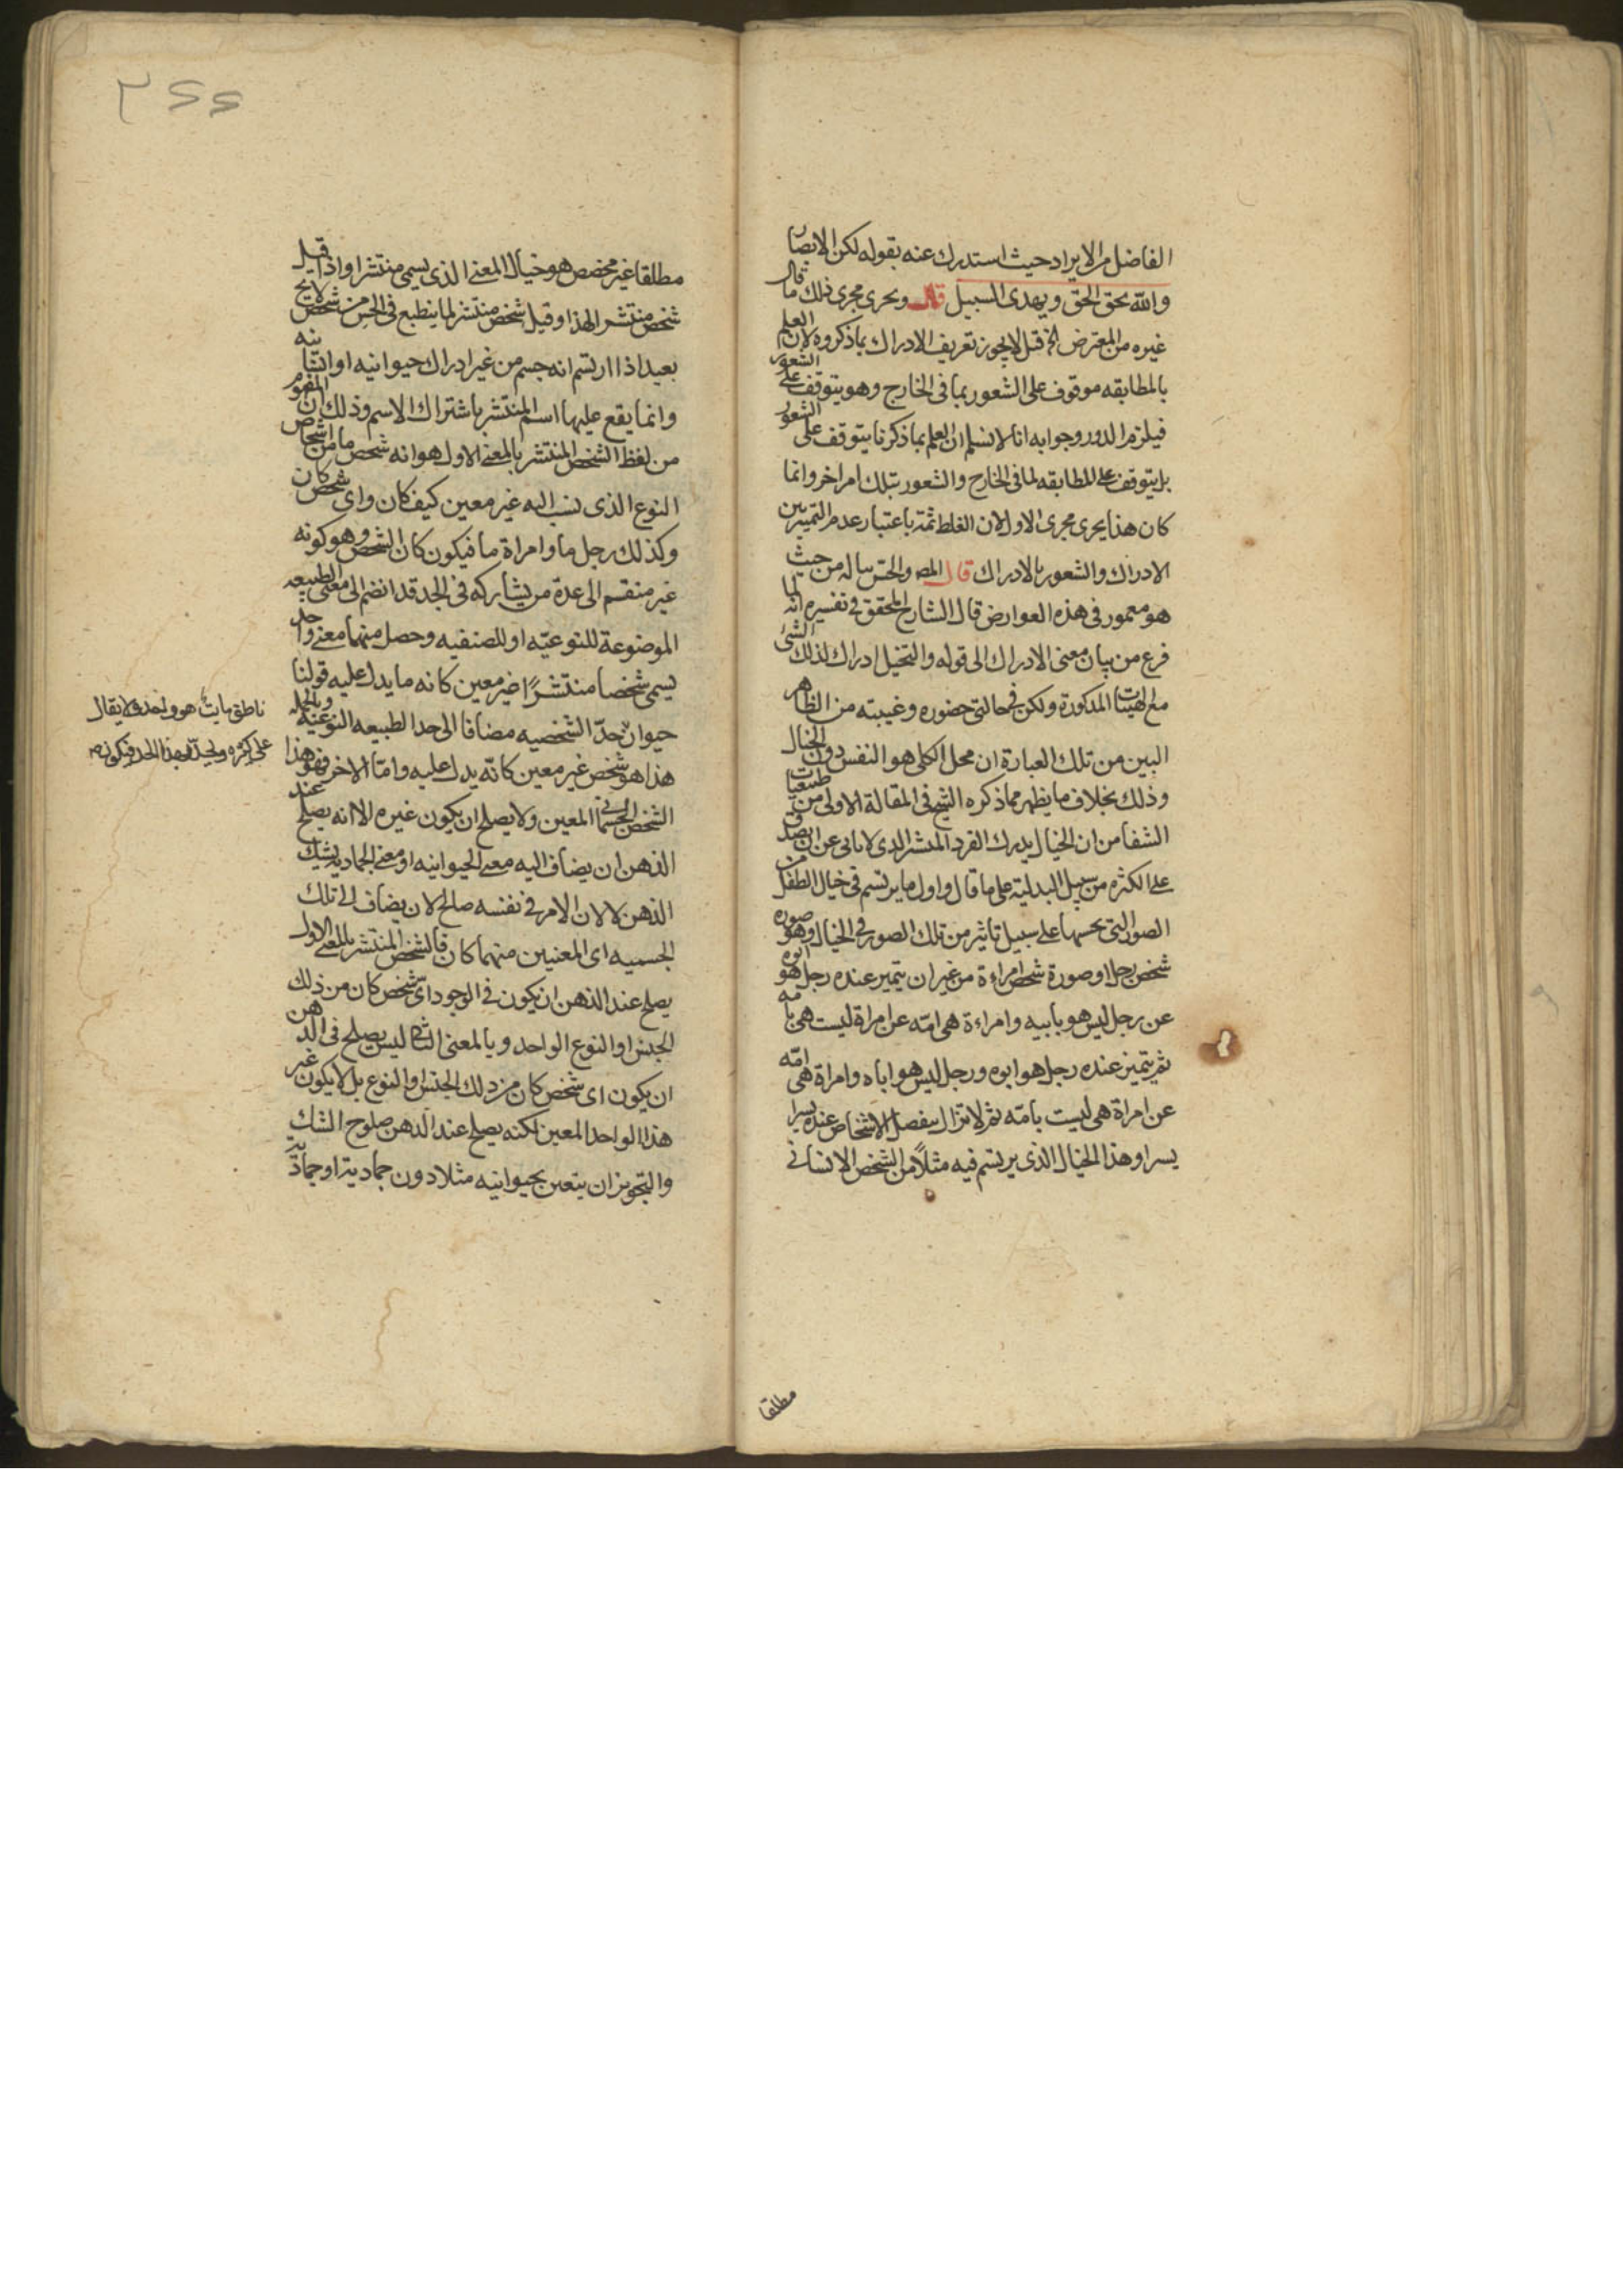 الفاضل من الايراد حيث استدرك عنه بقوله لكن الابصار
والله يحق الحق ويهدى السبيل قال ويحرى مجرى ذلك ما قال
غيره من المعترض الخ قيل لايجوز تعريف الادراك بما ذكروه لان العلم
بالمطابقه موقوف على الشعور بما فى الخارج وهو يتوقف على الشعور
فيلزم الدور وجوابه انا لا نسلم ان العلم بما ذكرنا يتوقف على الشعور
بل يتوقف على المطابقه لما فى الخارج والشعور بتلك امر اخر وانما
كان هذا يجرى مجرى الاول لان الغلط ثمة باعتبار عدم التميز بين
الادراك والشعور بالادراك قال المص والحس يناله من حيث
هو مغمور فى هذه العوارض قال الشارح المحقق فى تفسيره انه لما
فرغ من بيان معنى الادراك الى قوله والتخيل ادراك لذلك الشئ
مع الهيئات المذكورة ولكن فى حالتى حضوره وغيبته من الظاهر
البين من تلك العبارة ان محل الكلى هو النفس دون الخيال
وذلك بخلاف ما يظهر مما ذكره الشيخ فى المقالة الاولى من طبيعيات
الشفا من ان الخيال يدرك الفرد المنتشر الذى لا يابى عن ان يصدق
على الكثره من سبيل البدلية على ما قال واول ما يرتسم فى خيال الطفل من
الصور التى يحسها على سبيل تاثير من تلك الصور فى الخيال وهو صوره
شخص رجل او صورة شخص امراءة من غير ان يتميز عنده رجل هو ابوه
عن رجل ليس هو بابيه وامراءة هى امّه عن امراة ليست هى بامه
ثم يتميز عنده رجل هو ابوه ورجل ليس هو اباه وامراة هى امّه
عن امراة هى ليست بامّه ثم لا تزال ينفصل الاشخاص عنده يسرا
يسرا وهذا الخيال الذى يرتسم فيه مثلاً من الشخص الانسانى
مطلقا
مطلقا غير مخصص هو خيال المعنى الذى يسمى منتشرا واذا قيل
شخص منتشر لهذا وقيل شخص منتشر لما ينطبع فى الحس من شخص لايح
بعيد اذا ارتسم انه جسم من غير ادراك حيوانيه او انسانيه
وانما يقع عليها اسم المنتشر باشتراك الاسم وذلك ان المفهوم
من لفظ الشخص المنتشر بالمعنى الاول هو انه شخص ما من اشخاص
النوع الذى نسب اليه غير معين كيف كان واى شخص كان
وكذلك رجل ما وامراة ما فيكون كان الشخص وهو كونه
غير منقسم الى عدة من يشاركه فى الحد قد انضم الى معنى الطبيعه
الموضوعة للنوعيّه او للصنفيه وحصل منهما معنى واحد
يسمى شخصا منتشرًا غير معين كانه ما يدل عليه قولنا
حيوان حدّ الشخصيه مضافا الى حد الطبيعه النوعيه وبالجمله
هذا هو شخص غير معين كانّه يدل عليه وامّا الاخر فهو هذا
الشخص الجسمانى المعين ولا يصلح ان يكون غيره الا انه يصلح عند
الذهن ان يضاف اليه معنى الحيوانيه او معنى الجماديه بشك
الذهن لا لان الامر فى نفسه صالح لان يضاف الى تلك
الجسميه اى المعنيين منهما كان فالشخص المنتشر بالمعنى الاول
يصلح عند الذهن ان يكون فى الوجود اىّ شخص كان من ذلك
الجنس او النوع الواحد وبالمعنى الثانى ليس يصلح فى الذهن
ان يكون اى شخص كان من ذلك الجنس او النوع بل لا يكون غير
هذا الواحد المعين لكنه يصلح عند الذهن صلوح الشك
والتجويز ان يتعين بحيوانيه مثلا دون جماديته او جماديته
ناطق مايت هو واحد ولا يقال
على كثره ويحدّ بهذا الحد فيكون
٣٢٢